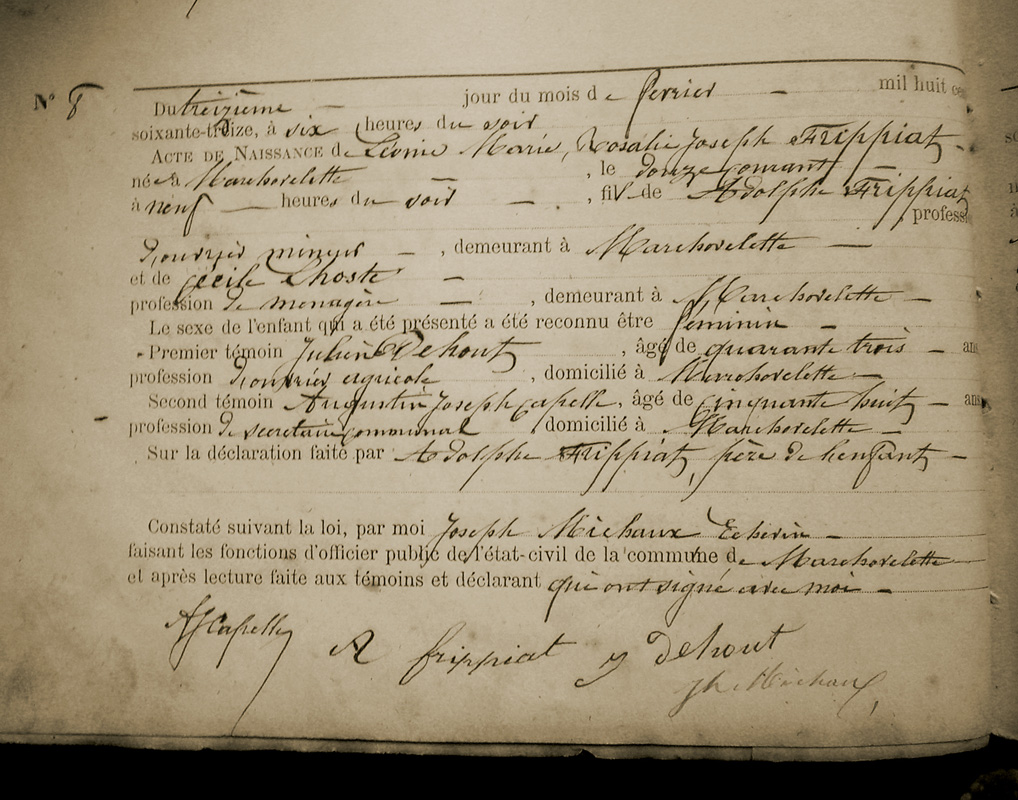 N° 8
Du treizième jour du mois de fevrier mil huit ce
soixante-treize, à six heures du soir
ACTE DE NAISSANCE de Léonie Marie, Rosalie Joseph Frippiat
née à Marchovelette, le douze courant
à neuf heures du soir, fil de Adolphe Frippiat
profess
d'ouvrier mineur, demeurant à Marchovelette
et de Cécile Lhoste
profession de menagère, demeurant à Marchovelette
Le sexe de l'enfant qui a été présenté a été reconnu être féminin
Premier témoin Julien Dehout, âgé de quarante trois ans
profession d'ouvrier agricole, domicilié à Marchovelette
Second témoin Augustin Joseph Capelle, âgé de cinquante huit ans
profession de secretaire communal, domicilié à Marchovelette
Sur la déclaration faite par Adolphe Frippiat, père de l'enfant
Constaté suivant la loi, par moi Joseph Michaux Echevin
faisant les fonctions d'officier public de l'état-civil de la commune de Marchovelette
et après lecture faite aux témoins et déclarant qui ont signé avec moi
AJCapelle
A frippiat J Dehout
Jh Michaux